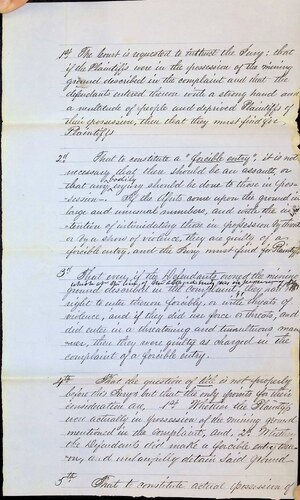 1st The Court is requested to instruct the Jury: that
if the Plaintiffs were in the possession of the mining
ground described in the complaint and that the
defendants entered thereon with a strong hand and
a multitude of people and deprived Plaintiffs of
their possession, then that they must find for
Plaintiffs
2d That to constitute a "forcible entry", it is not
necessary that there should be an assault, or
bodily
that any injury should be done to those in pos-
session - If the defts come upon the ground in
large and unusual numbers, and with the in-
tention of intimidating those in possession by threats
or by a show of violence they are guilty of a
forcible entry, and the Jury must find for Plaintiffs
3d That even if the Defendants owned the mining
which at the time of
ground described in the complaint, they had no
right to enter thereon forcibly, or with threats of
violence, and if they did use force or threats, and
did enter in a threatening and tumultuous man-
ner, then they were guilty as charged in the
complaint of a forcible entry.
4th That the question of title is not properly
before this Jury but that the only points for their
consideration are, 1st Whether the Plaintiffs
were actually in possession of the mining ground
mentioned in the Complaint, and, 2d Whether
the Defendants did make a forcible entry there-
on, and unlawfully detain said ground.
5th That to constitute actual possession of